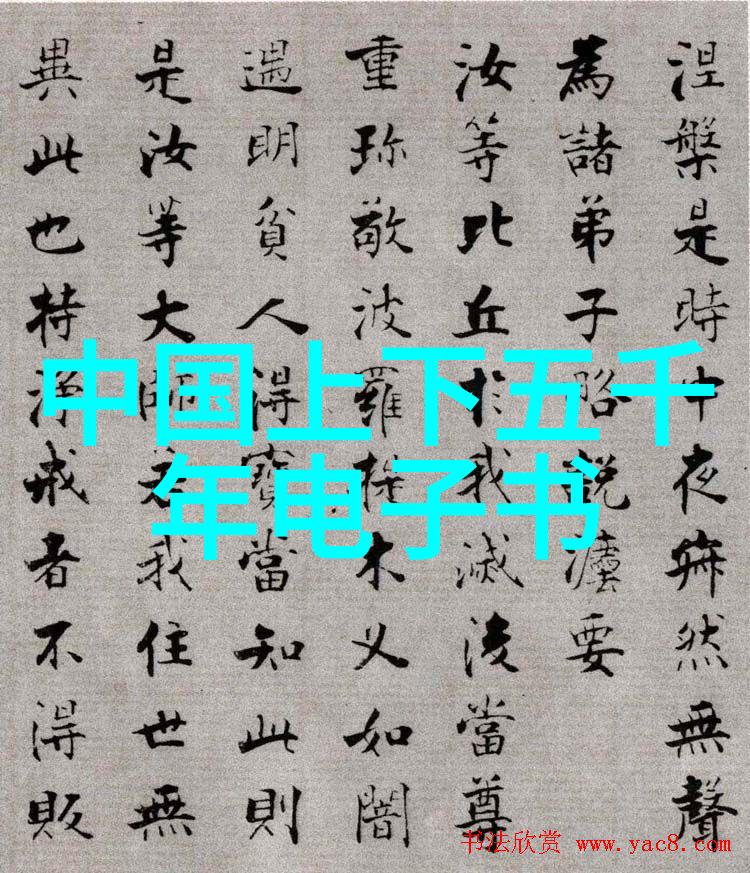 涅槃是時中夜寂然無聲
為諸弟子略說灋要
汝等比丘於我滅後當尊
重珍敬波羅提木叉如闇
遇明貧人得寶當知此則
是汝等大師若我住世無
異此也持淨戒者不得販
中国上下五千
年电子书
书法欣赏 www.yac8.com